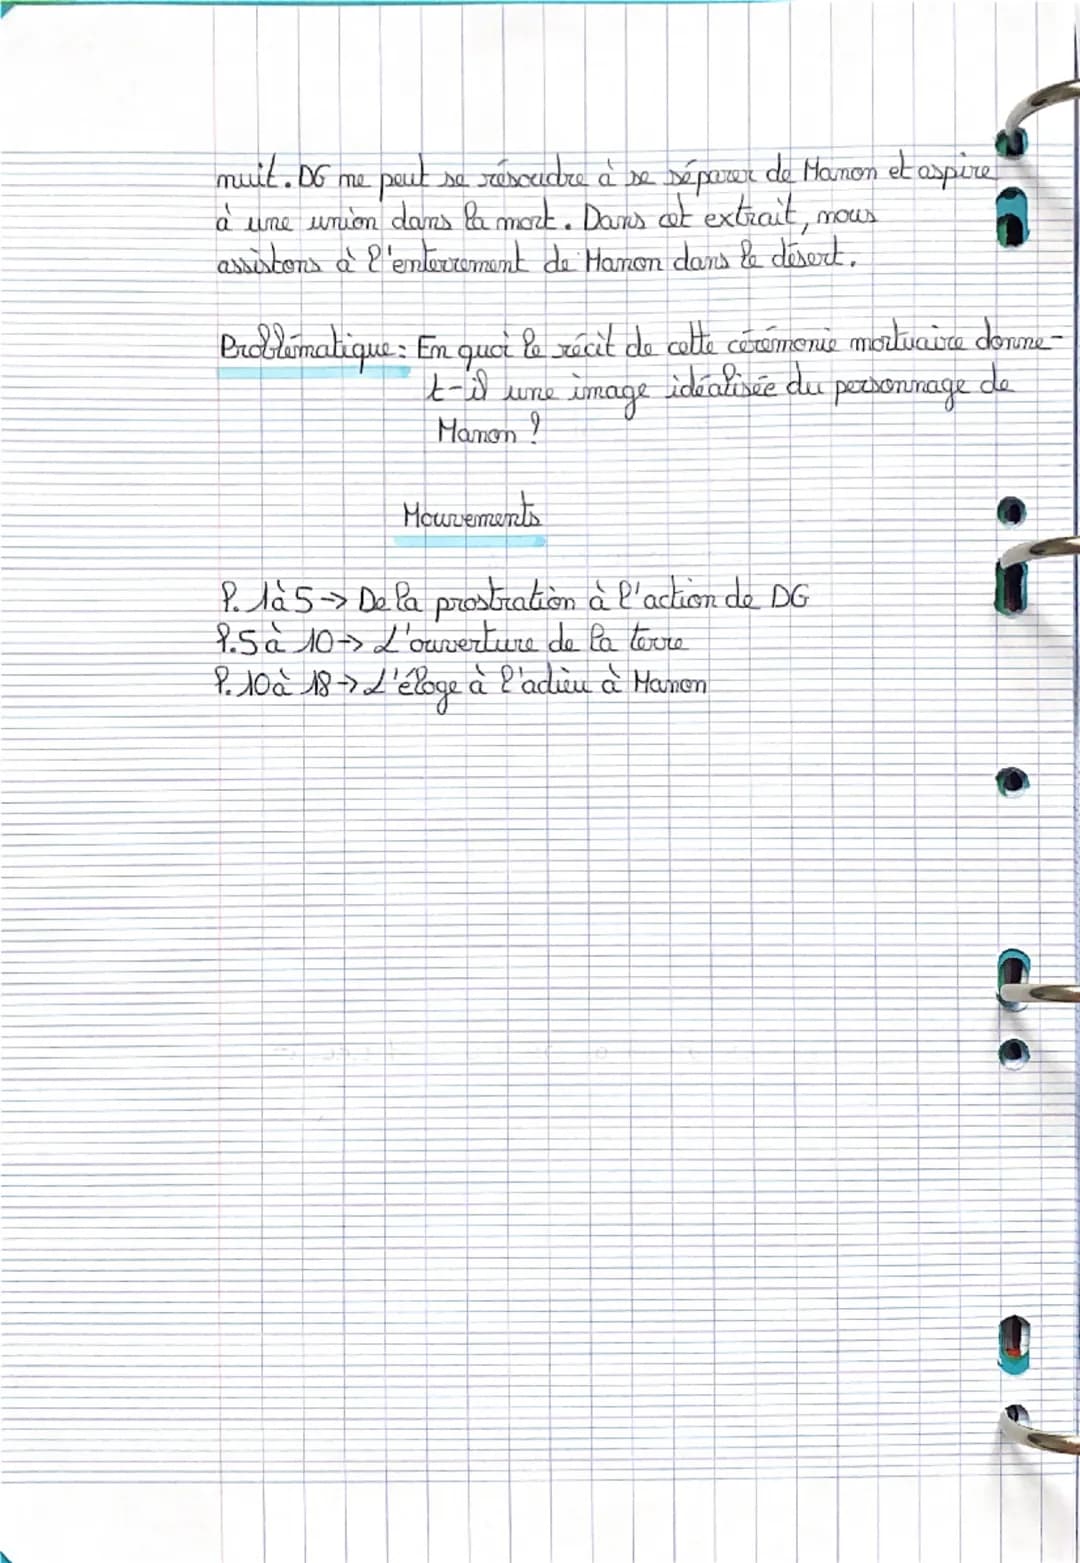 nuit. DG ne peut se résoudre à se séparer de Manon et aspire
à une union dans la mort. Dans cet extrait, nous
assistons à l'enterrement de Manon dans le désert.
Problématique : En quoi le récit de cette cérémonie mortuaire donne-
t-il une image idéalisée du personnage de
Manon ?
Mouvements
l. 1 à 5 → De la prostration à l'action de DG
l. 5 à 10 → L'ouverture de la terre
l. 10 à 18 → L'éloge à l'adieu à Manon